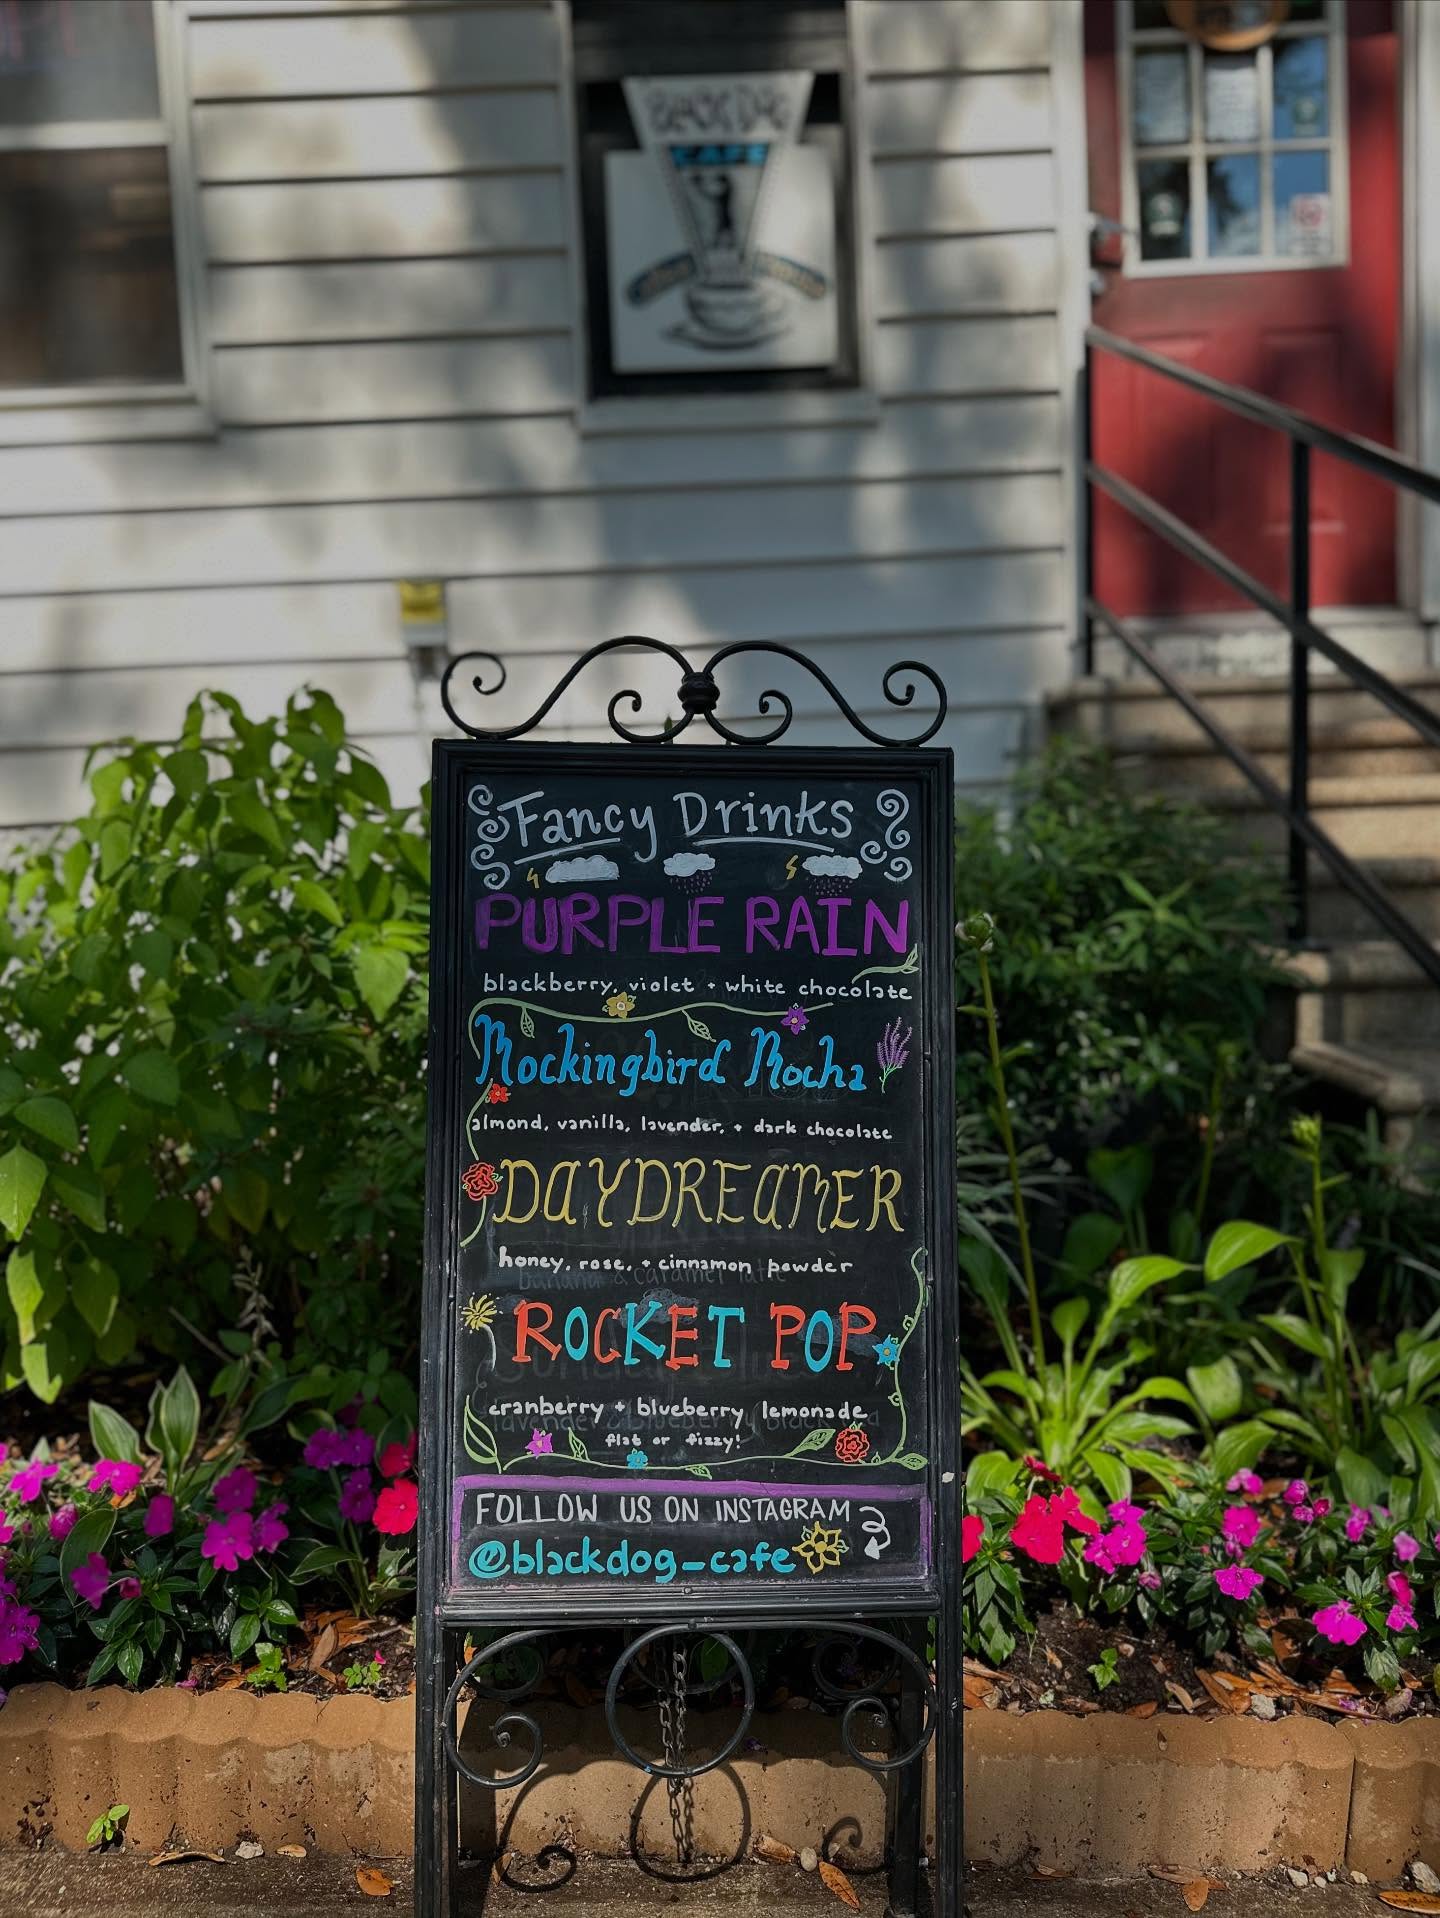 BLACK DOG
CAFE
Fancy Drinks
PURPLE RAIN
blackberry, violet + white chocolate
Mockingbird Mocha
almond, vanilla, lavender, + dark chocolate
DAYDREAMER
honey, rose, + cinnamon powder
banana & caramel latte
ROCKET POP
cranberry + blueberry lemonade
flat or fizzy!
FOLLOW US ON INSTAGRAM
@blackdog_cafe